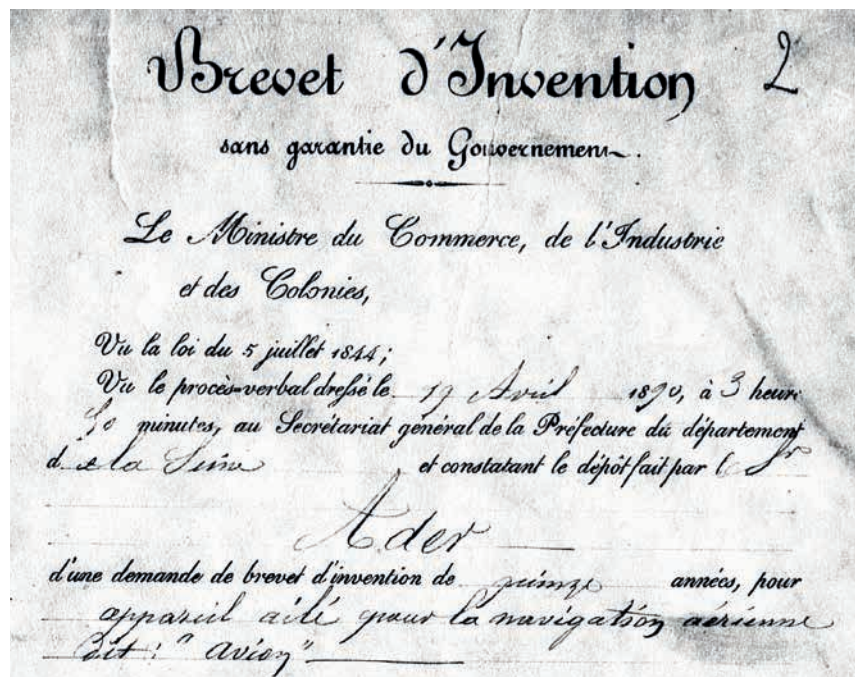 Brevet d'Invention 2
sans garantie du Gouvernement.
Le Ministre du Commerce, de l'Industrie
et des Colonies,
Vu la loi du 5 juillet 1844;
Vu le procès-verbal dressé le 19 Avril 1890, à 3 heure
minutes, au Secrétariat général de la Préfecture du département
de la Seine et constatant le dépôt fait par le Sr
Ader
d'une demande de brevet d'invention de quinze années, pour
appareil ailé pour la navigation aérienne
dit: "Avion"